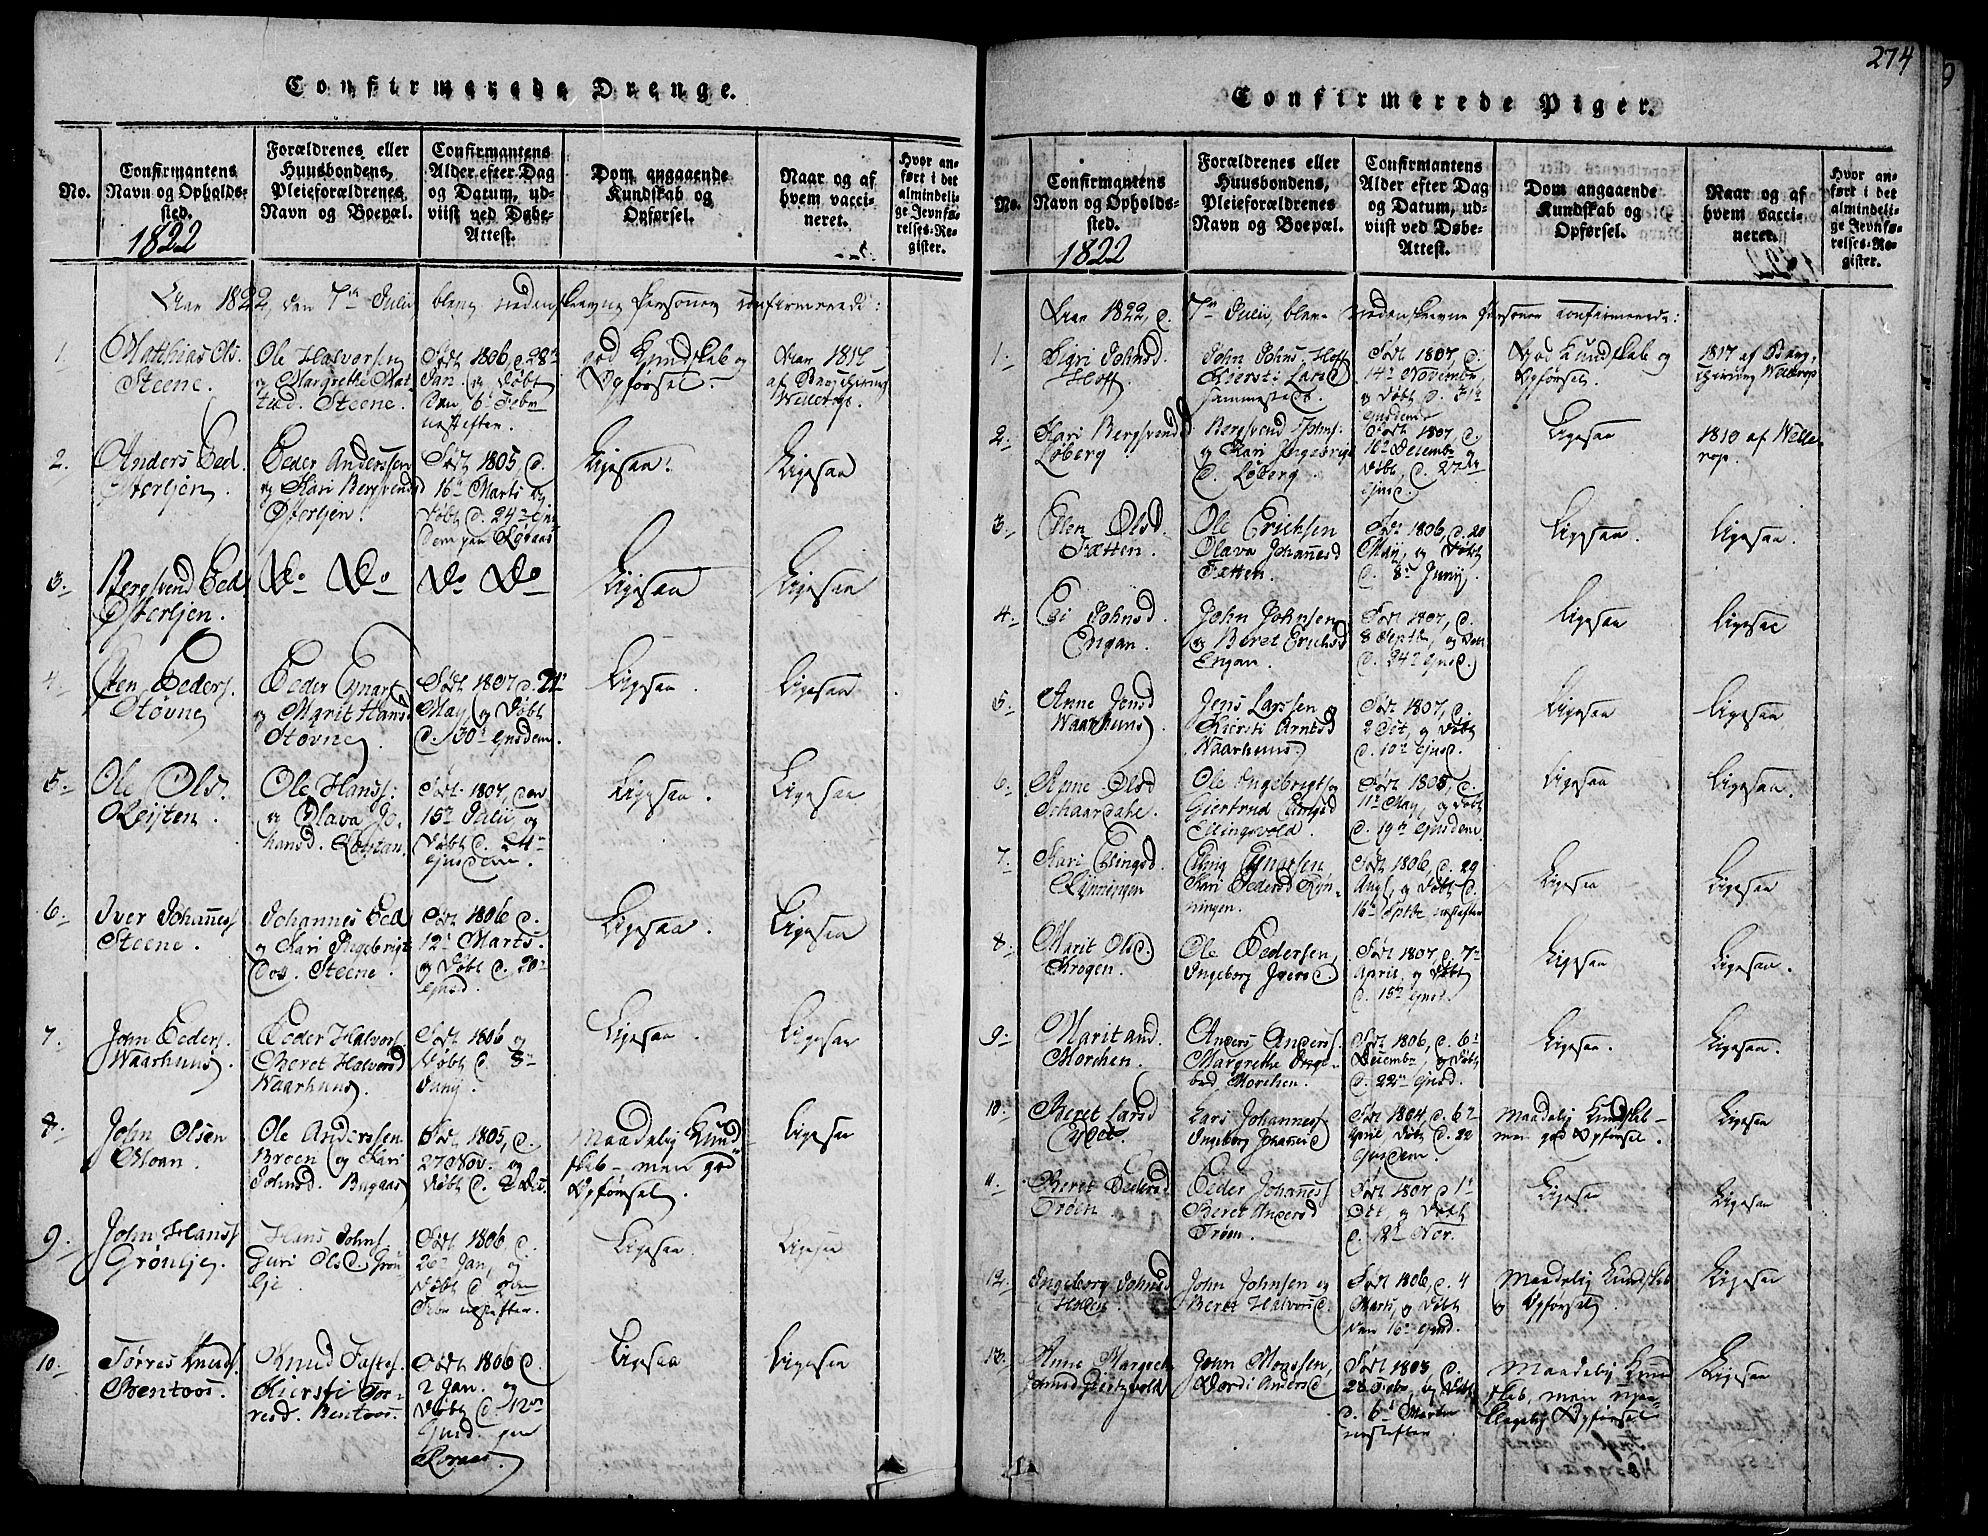 Confirmerede Drenge.
No.
Confirmantens
Navn og Opholds-
sted.
1822
Forældrenes eller
Huusbondens,
Pleieforældrenes
Navn og Boepæl.
Confirmantens
Alder efter Dag
og Datum, ud-
viist ved Døbe-
Attest.
Dom angaaende
Kundskab og
Opførsel.
Naar og af
hvem vacci-
neret.
Hvor an-
ført i det
almindeli-
ge Jevnfø-
relses-Re-
gister.
Aar 1822, den 7de Julii bleve nedenskrevne Personer confirmerede:
1.
Matthias Ols.
Steene.
Ole Halvorsen
og Margrethe Mat
Steene.
Født 1806 d. 28de
Jan. og Døbt
den 6te Febr
næstefter.
god Kundskab og
Opførsel.
Aar 1817
af
2.
Anders Ped.
Østerljen.
Peder Anderssen
og Kari Bergsvends
Østerljen.
Født 1805 d.
16de Marts og
Døbt d. 24de
paa Røraas
Ligesaa.
Ligesaa
3.
Bergsvend Ped
Østerljen.
Do Do
Do Do
Ligesaa
Ligesaa
4.
Sten Peders.
Støvne
Peder Eynars
og Marit Hansd
Støvne
Født 1807 d. 21de
May og Døbt
d. 30te Ejusdem.
Ligesaa
Ligesaa
5.
Ole Ols.
Reisten.
Ole Hanss.
og Olava Jo-
hansd.
Født 1807, den
15de Julii og
Døbt d. 24de
Ejusdem.
Ligesaa.
Ligesaa
6.
Iver Johannes
Steene.
Johannes Ped
og Kari Ingebrigt
Dos. Steene
Født 1806 d.
12te Marts.
og Døbt d. 20de
Ejusd.
Ligesaa.
Ligesaa
7.
John Peders.
Waarhuus.
Peder Halvors
Beret Halvorsd
Waarhuus.
Født 1806 og
Døbt d. 8de
Junij.
Ligesaa
Ligesaa
8.
John Olsen
Moan.
Ole Anderssen
Broen og Kari
Johnsd. Bugaas
Født 1805, d.
27 Nov. og
Døbt d. 2 Des.
Maadelig Kund
skab - men god
Opførsel.
Ligesaa
9.
John Hanss.
Grønlje.
Hans Johns.
Guri Olsd. Grøn-
lje.
Født 1806 d.
26de Jan, og
Døbt d. 2den
Febr næstefter.
Ligesaa.
Ligesaa
10.
Tørres Knuds.
Bentoos.
Knud Fastes.
Kiersti Tør-
resd. Bentoos.
Født 1806 d.
2 Jan. og
Døbt d. 12te
Ejusd paa
Roraas.
Ligesaa
Ligesaa
274
Confirmerede Piger.
No.
Confirmantens
Navn og Opholds-
sted.
1822
Forældrenes eller
Huusbondens,
Pleieforældrenes
Navn og Boepæl.
Confirmantens
Alder efter Dag
og Datum, ud-
viist ved Døbe-
Attest.
Dom angaaende
Kundskab og
Opførsel.
Naar og af
hvem vacci-
neret.
Hvor an-
ført i det
almindeli-
ge Jevnfø-
relses-Re-
gister.
Aar 1822, d. 7de Julii, bleve nedenskrevne Personer confirmerede:
1.
Sigri Johnsd.
Hoff.
John Johns. Hoff
Kiersti Larsd
Født 1807, d.
14de Novembr
og Døbt d.
Ejusdem
God Kundskab og
Opførsel.
1817 af
2.
Kari Bergsvend
Løberg.
Bergsvend Johns.
og Kari Ingebrigt
D. Løberg
Født 1807, d.
16de Decembr og
Døbt, d. 27de
Ejusd.
Ligesaa
1810 af Welle
rop.
3.
Elen Olsd
Fætten.
Ole Erichsen
Olava Johannesd
Fætten.
Født 1806, d. 20
May, og Døbt
d. 8de Junij.
Ligesaa.
Ligesaa.
4.
Johnsd.
Engan.
John Johnsen
og Beret Erichsd
Engan.
Født 1807, d.
8 Septbr, og Døbt
d. 24de Ejusd.
Ligesaa
Ligesaa
5.
Anne Jensd
Waarhuus.
Jens Larssen og
Kiersti Arntsd
Waarhuus.
Født 1807, d.
2 Oct, og Døbt
d. 10de Ejusd.
Ligesaa
Ligesaa
6.
Anne Olsd
Schaardahl.
Ole Ingebrigts og
Giertrud
Ellingsvold.
Født 1805 d.
11te May, og Døbt
d. 19de Ejusdem
Ligesaa
Ligesaa.
7.
Kari Ellingsd
Rønningen
Elling Eynarsen
Kari Pedersd Røn-
ningen.
Født 1806, d. 29
Aug, og Døbt d.
16de Septbr næstefter
Ligesaa
Ligesaa.
8.
Marit Olsd.
Krogen.
Ole Pedersen,
Ingeborg Iversd.
Født 1807 d. 7de
April og Døbt
d. 15de Ejusd.
Ligesaa
Ligesaa.
9.
Marit And.
Morchen.
Anders Anders.
Margrethe
Morchen.
Født 1806, d. 6te
Decembr, og Døbt
d. 22de Ejusd.
Ligesaa.
Ligesaa.
10.
Beret Larsd
Lars Johannes
Ingeborg Johannesd
Født 1804, d. 6te
April Døbt d. 22
Ejusdem.
Maadelig Kundskab -
men god Opførsel.
Ligesaa
11.
Beret Pedersd
Trøen
Peder Johanness
Beret Andersd
Trøen.
Født 1807 d 1te
Oct, og Døbt
Nov.
Ligesaa
Ligesaa.
12.
Ingeborg Johnsd
John Johnsen og
Beret Halvorsd.
Født 1806, d. 4
Marti, og Døbt
den 16de Ejusd.
Maadelig Kundskab
og Opførsel.
Ligesaa
13.
Anne Margreth
Johnsd
John Monssen,
Dordi Andersd.
Født 1805 d.
Febr, og Døbt
d. 6te Martii
næstefter
Maadelig Kund
skab, men upaa-
klagelig Opførsel
Ligesaa